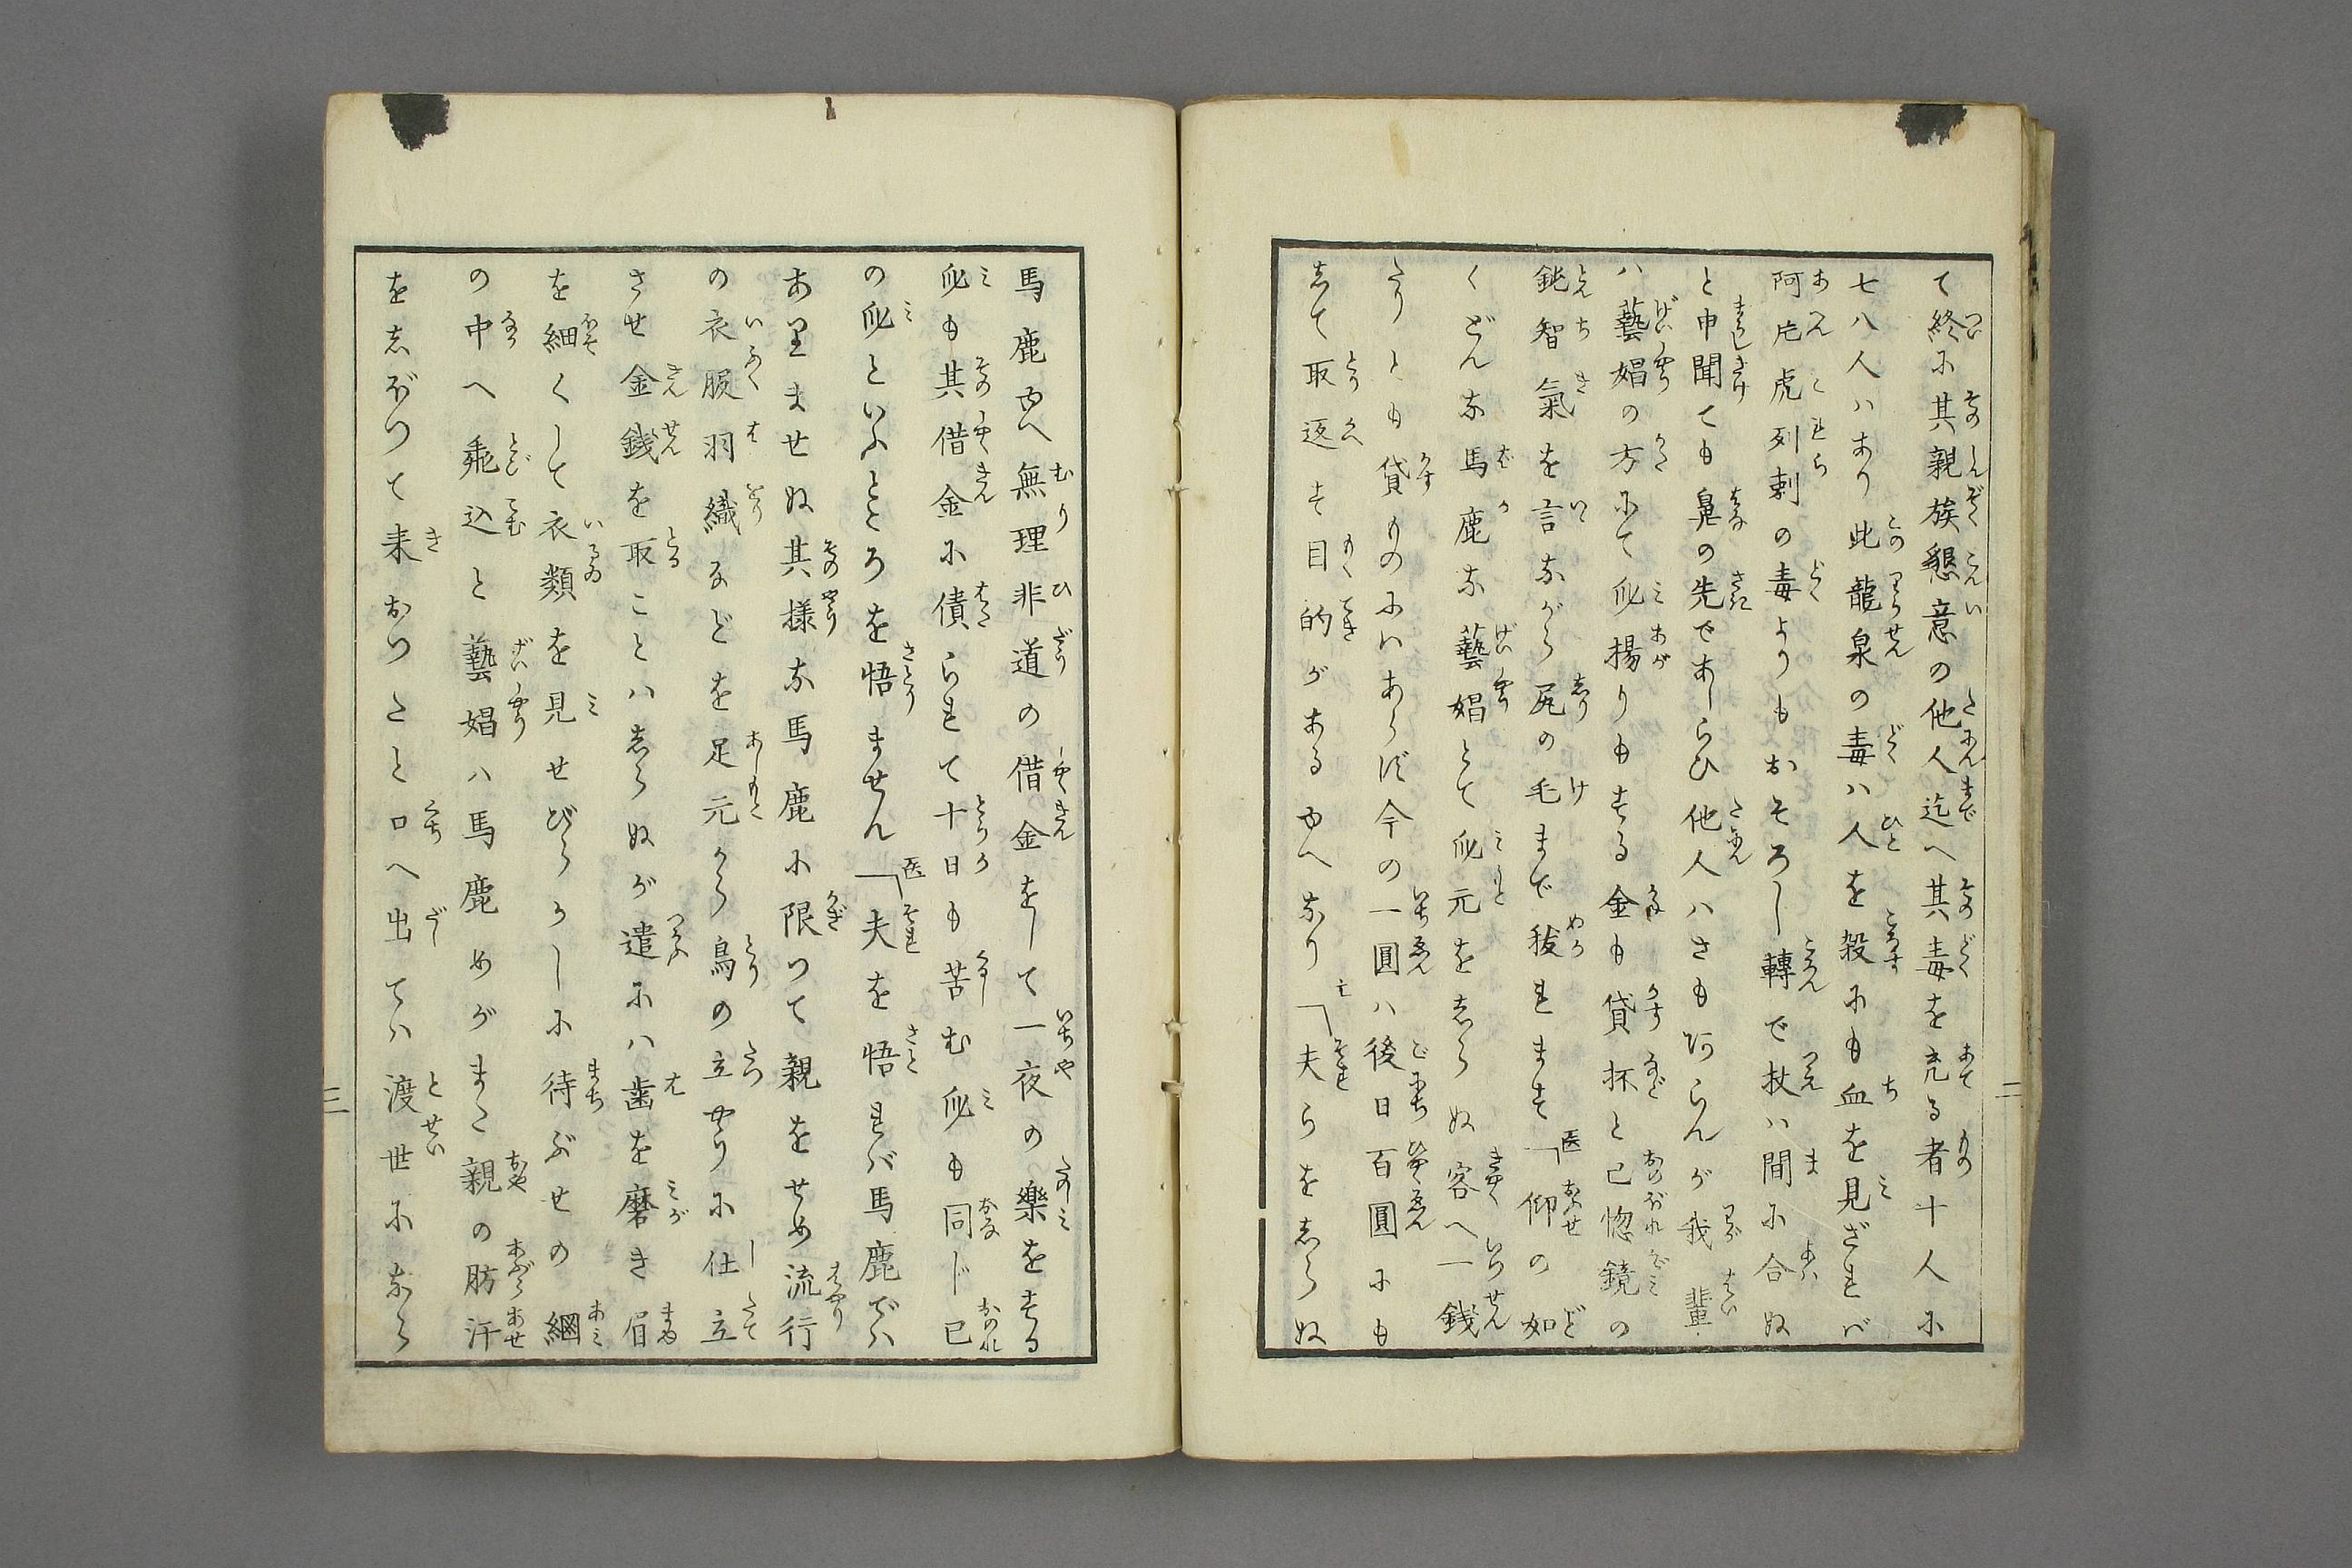 て終に其親族懇意の他人迄へ其毒を充る者十人に
七八人ハあり此龍泉の毒ハ人を殺にも血を見ざれバ
阿片虎列剌の毒よりもおそろし轉で杖ハ間に合ぬ
と申聞ても鼻の先であしらひ他人ハさも阿らんが我輩
ハ藝娼の方にて身揚りもする金も貸抔と己惚鏡の
鈍智氣を言ながら尻の毛まで拔れます「医仰の如
くどんな馬鹿な藝娼とて身元をしらぬ客へ一銭
たりとも貸ものにハあらず今の一圓ハ後日百圓にも
して取返す目的があるゆへなり「主夫らをしらぬ
馬鹿ゆへ無理非道の借金をして一夜の樂をする
身も其借金に債られて十日も苦む身も同じ己
の身といふところを悟ません「医夫を悟れバ馬鹿でハ
ありませぬ其様な馬鹿に限つて親をせめ流行
の衣服羽織などを足元から鳥の立やうに仕立
させ金銭を取ことハしらぬが遣にハ歯を磨き眉
を細くして衣類を見せびらかしに待ぶせの網
の中へ飛込と藝娼ハ馬鹿めがまた親の肪汗
をしぼつて来おつたと口へ出てハ渡世になら
二
三